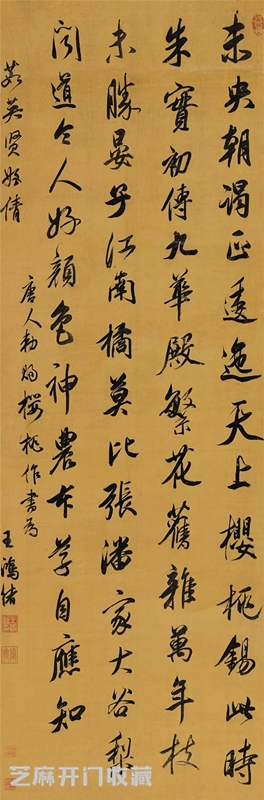 未央朝謁正逶迤天上櫻桃錫此時
朱實初傳九華殿繁花舊雜萬年枝
未勝晏子江南橘莫比張潘家大谷梨
聞道令人好顏色神農本草自應知
唐人勅賜櫻桃作書為
英賢姪倩
王鴻緒
芝麻开门收藏